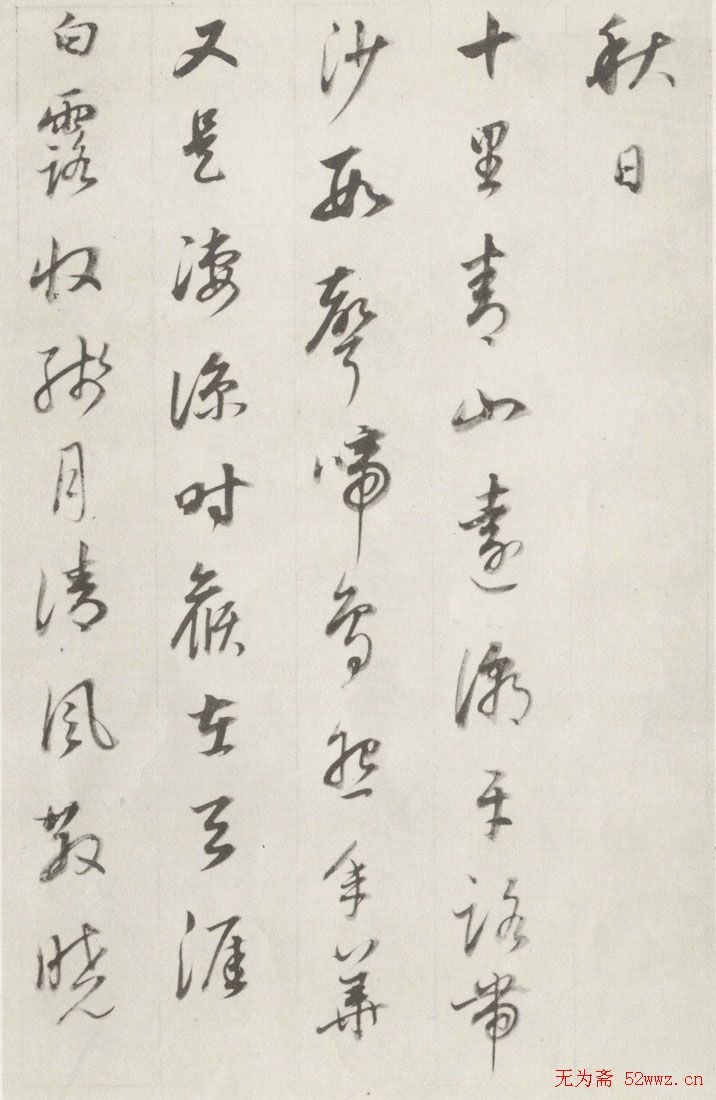 秋日
十里青山遠潮平路帶
沙數聲啼鳥怨年華
又是淒涼時候在天涯
白露收殘月清風散曉
无为斋 52wwz.cn